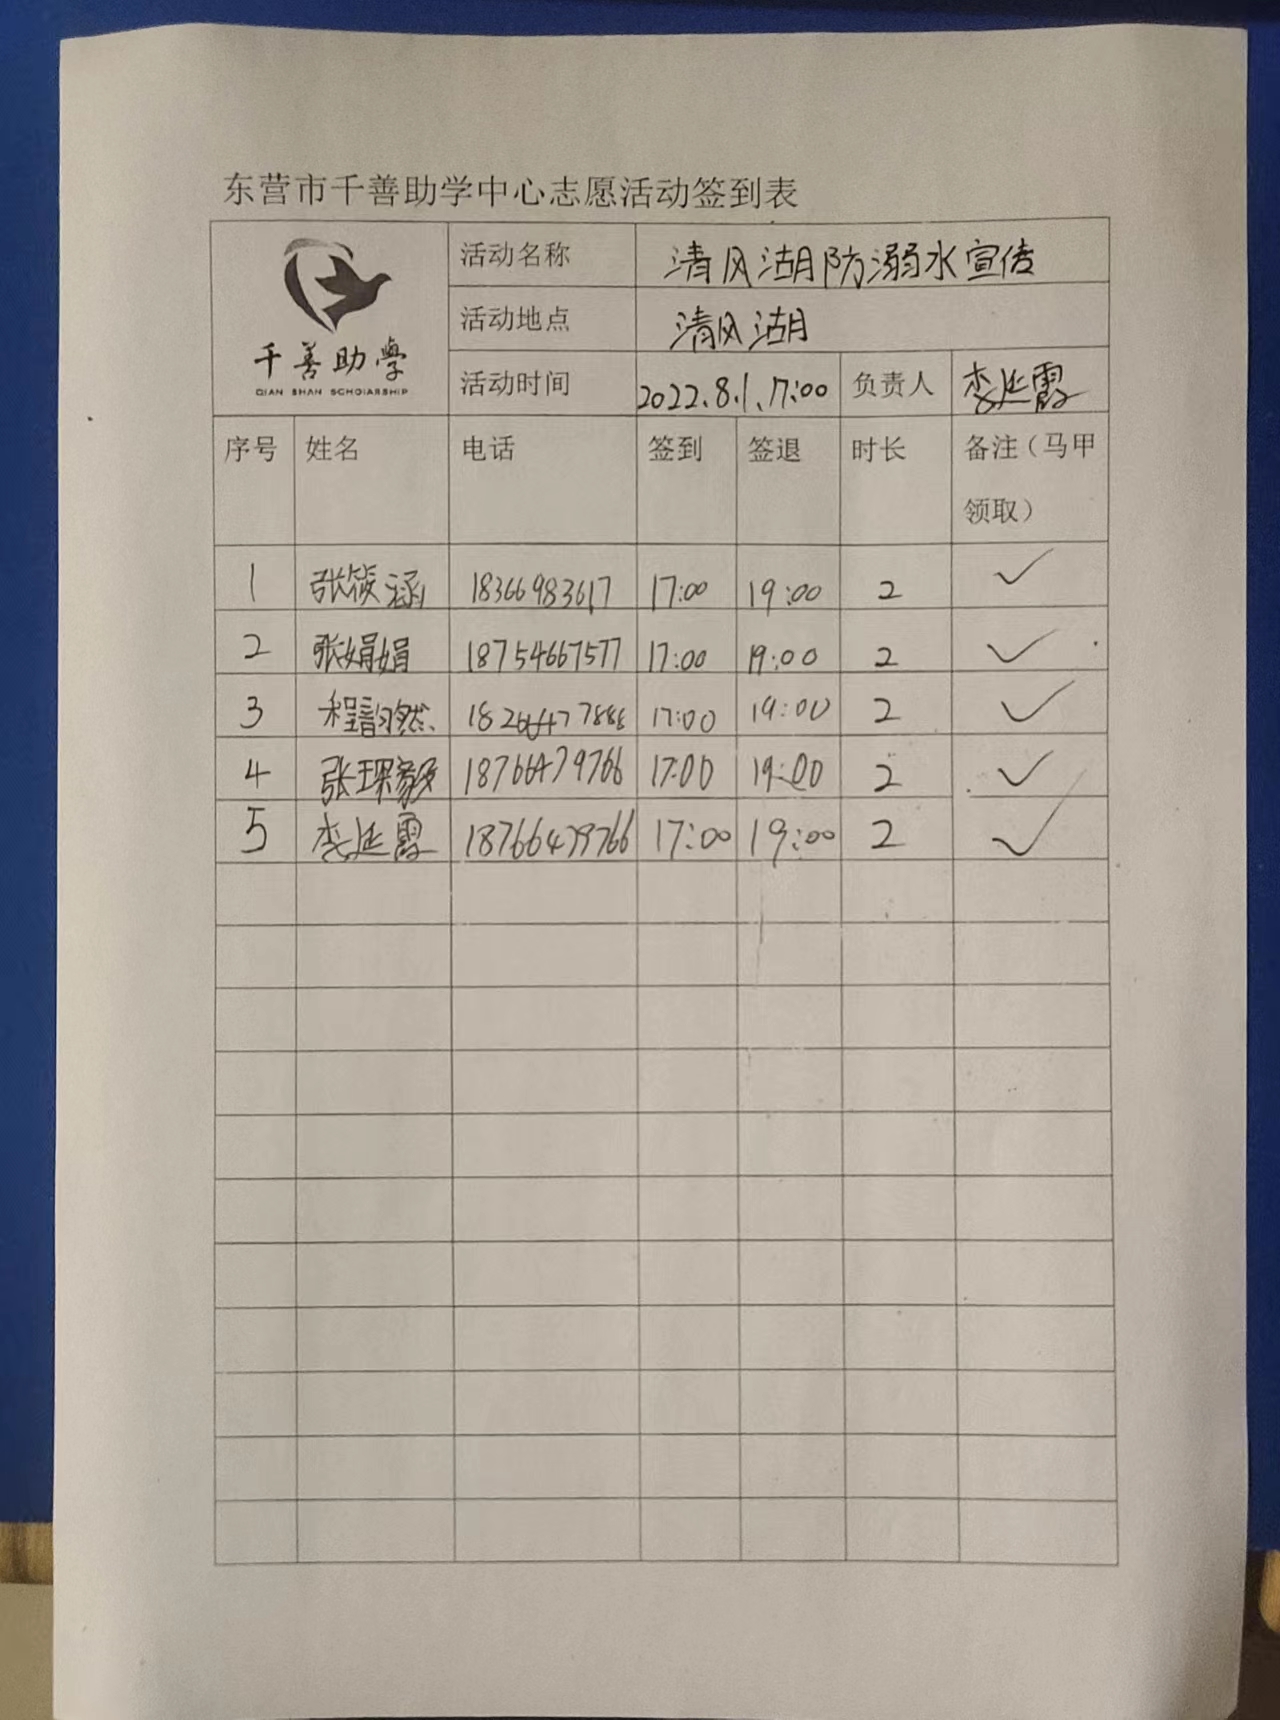 东营市千善助学中心志愿活动签到表
千善助学
QIAN SHAN SCHOLARSHIP
活动名称 清风湖防溺水宣传
活动地点 清风湖
活动时间 2022.8.1.17:00 负责人 李延霞
序号 姓名 电话 签到 签退 时长 备注（马甲领取）
1 张筱涵 18366983617 17:00 19:00 2 ✓
2 张娟娟 18754667577 17:00 19:00 2 ✓
3 程韵然 17:00 19:00 2 ✓
4 张琛毅 18766479766 17:00 19:00 2 ✓
5 李延霞 18766479766 17:00 19:00 2 ✓